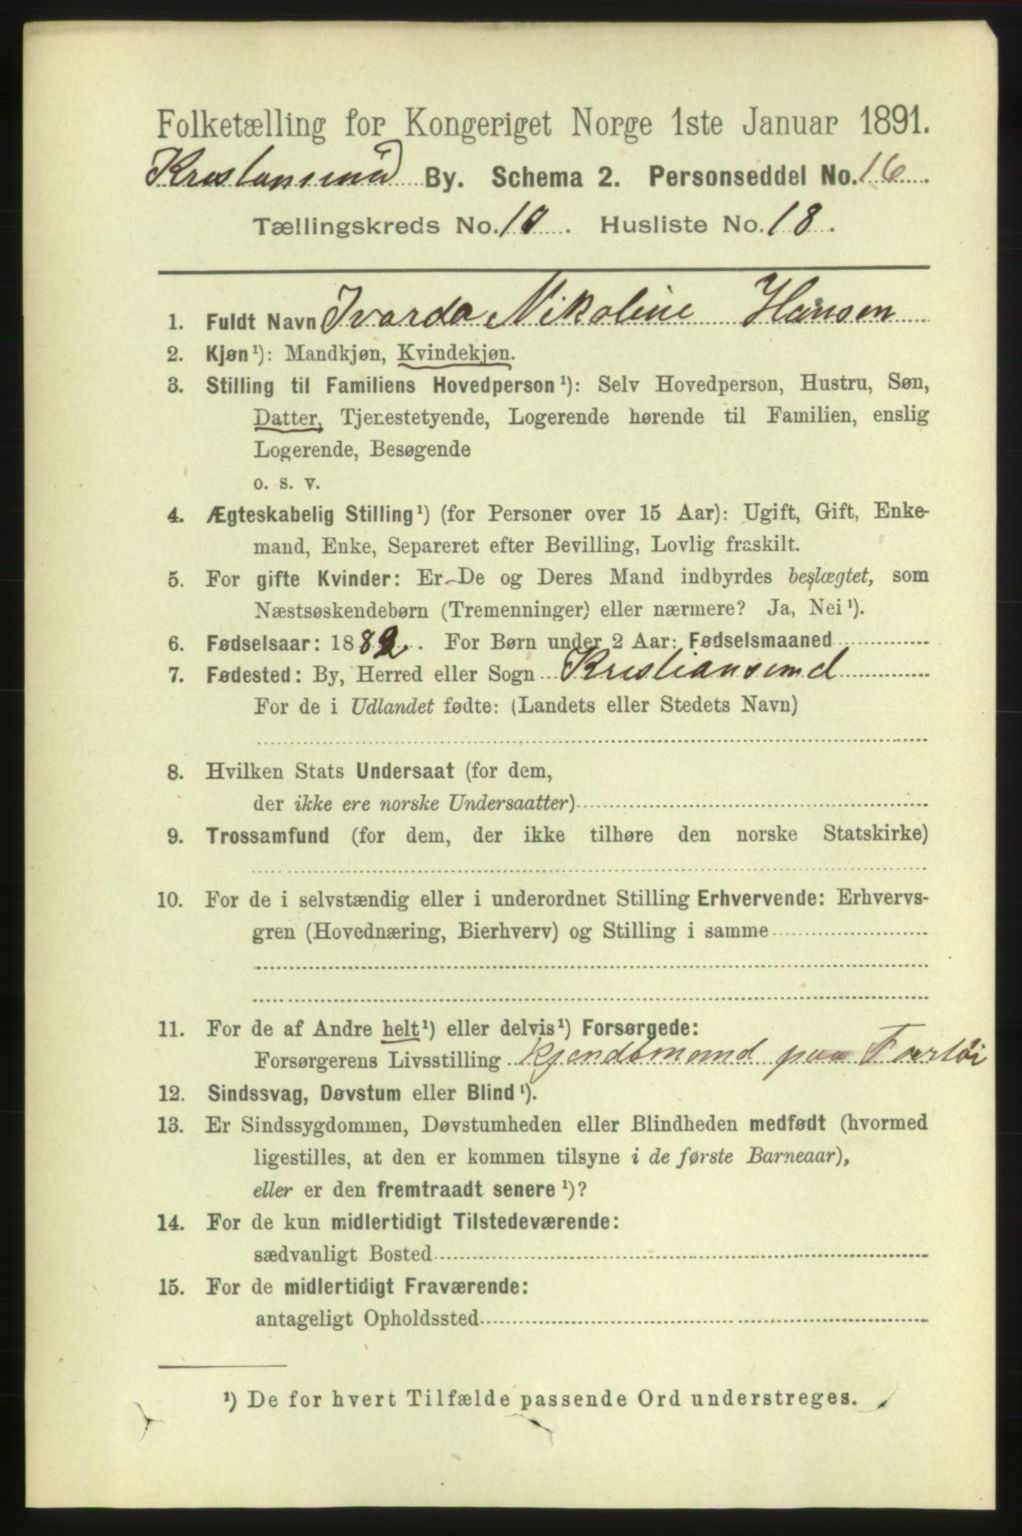 Folketælling for Kongeriget Norge 1ste Januar 1891.
Kristiansund By. Schema 2. Personseddel No. 16.
Tællingskreds No. 10. Husliste No. 18.
1. Fuldt Navn Ivarda Nikoline Hansen
2. Kjøn¹): Mandkjøn, Kvindekjøn.
3. Stilling til Familiens Hovedperson¹): Selv Hovedperson, Hustru, Søn,
Datter, Tjenestetyende, Logerende hørende til Familien, enslig
Logerende, Besøgende
o. s. v.
4. Ægteskabelig Stilling¹) (for Personer over 15 Aar): Ugift, Gift, Enke-
mand, Enke, Separeret efter Bevilling, Lovlig fraskilt.
5. For gifte Kvinder: Er De og Deres Mand indbyrdes beslægtet, som
Næstsøskendebørn (Tremenninger) eller nærmere? Ja, Nei¹).
6. Fødselsaar: 1882. For Børn under 2 Aar: Fødselsmaaned
7. Fødested: By, Herred eller Sogn Kristiansund
For de i Udlandet fødte: (Landets eller Stedets Navn)
8. Hvilken Stats Undersaat (for dem,
der ikke ere norske Undersaatter)
9. Trossamfund (for dem, der ikke tilhøre den norske Statskirke)
10. For de i selvstændig eller i underordnet Stilling Erhvervende: Erhvervs-
gren (Hovednæring, Bierhverv) og Stilling i samme
11. For de af Andre helt¹) eller delvis¹) Forsørgede:
Forsørgerens Livsstilling Kjendtmand paa Fartøi
12. Sindssvag, Døvstum eller Blind¹).
13. Er Sindssygdommen, Døvstumheden eller Blindheden medfødt (hvormed
ligestilles, at den er kommen tilsyne i de første Barneaar),
eller er den fremtraadt senere¹)?
14. For de kun midlertidigt Tilstedeværende:
sædvanligt Bosted
15. For de midlertidigt Fraværende:
antageligt Opholdssted
¹) De for hvert Tilfælde passende Ord understreges.